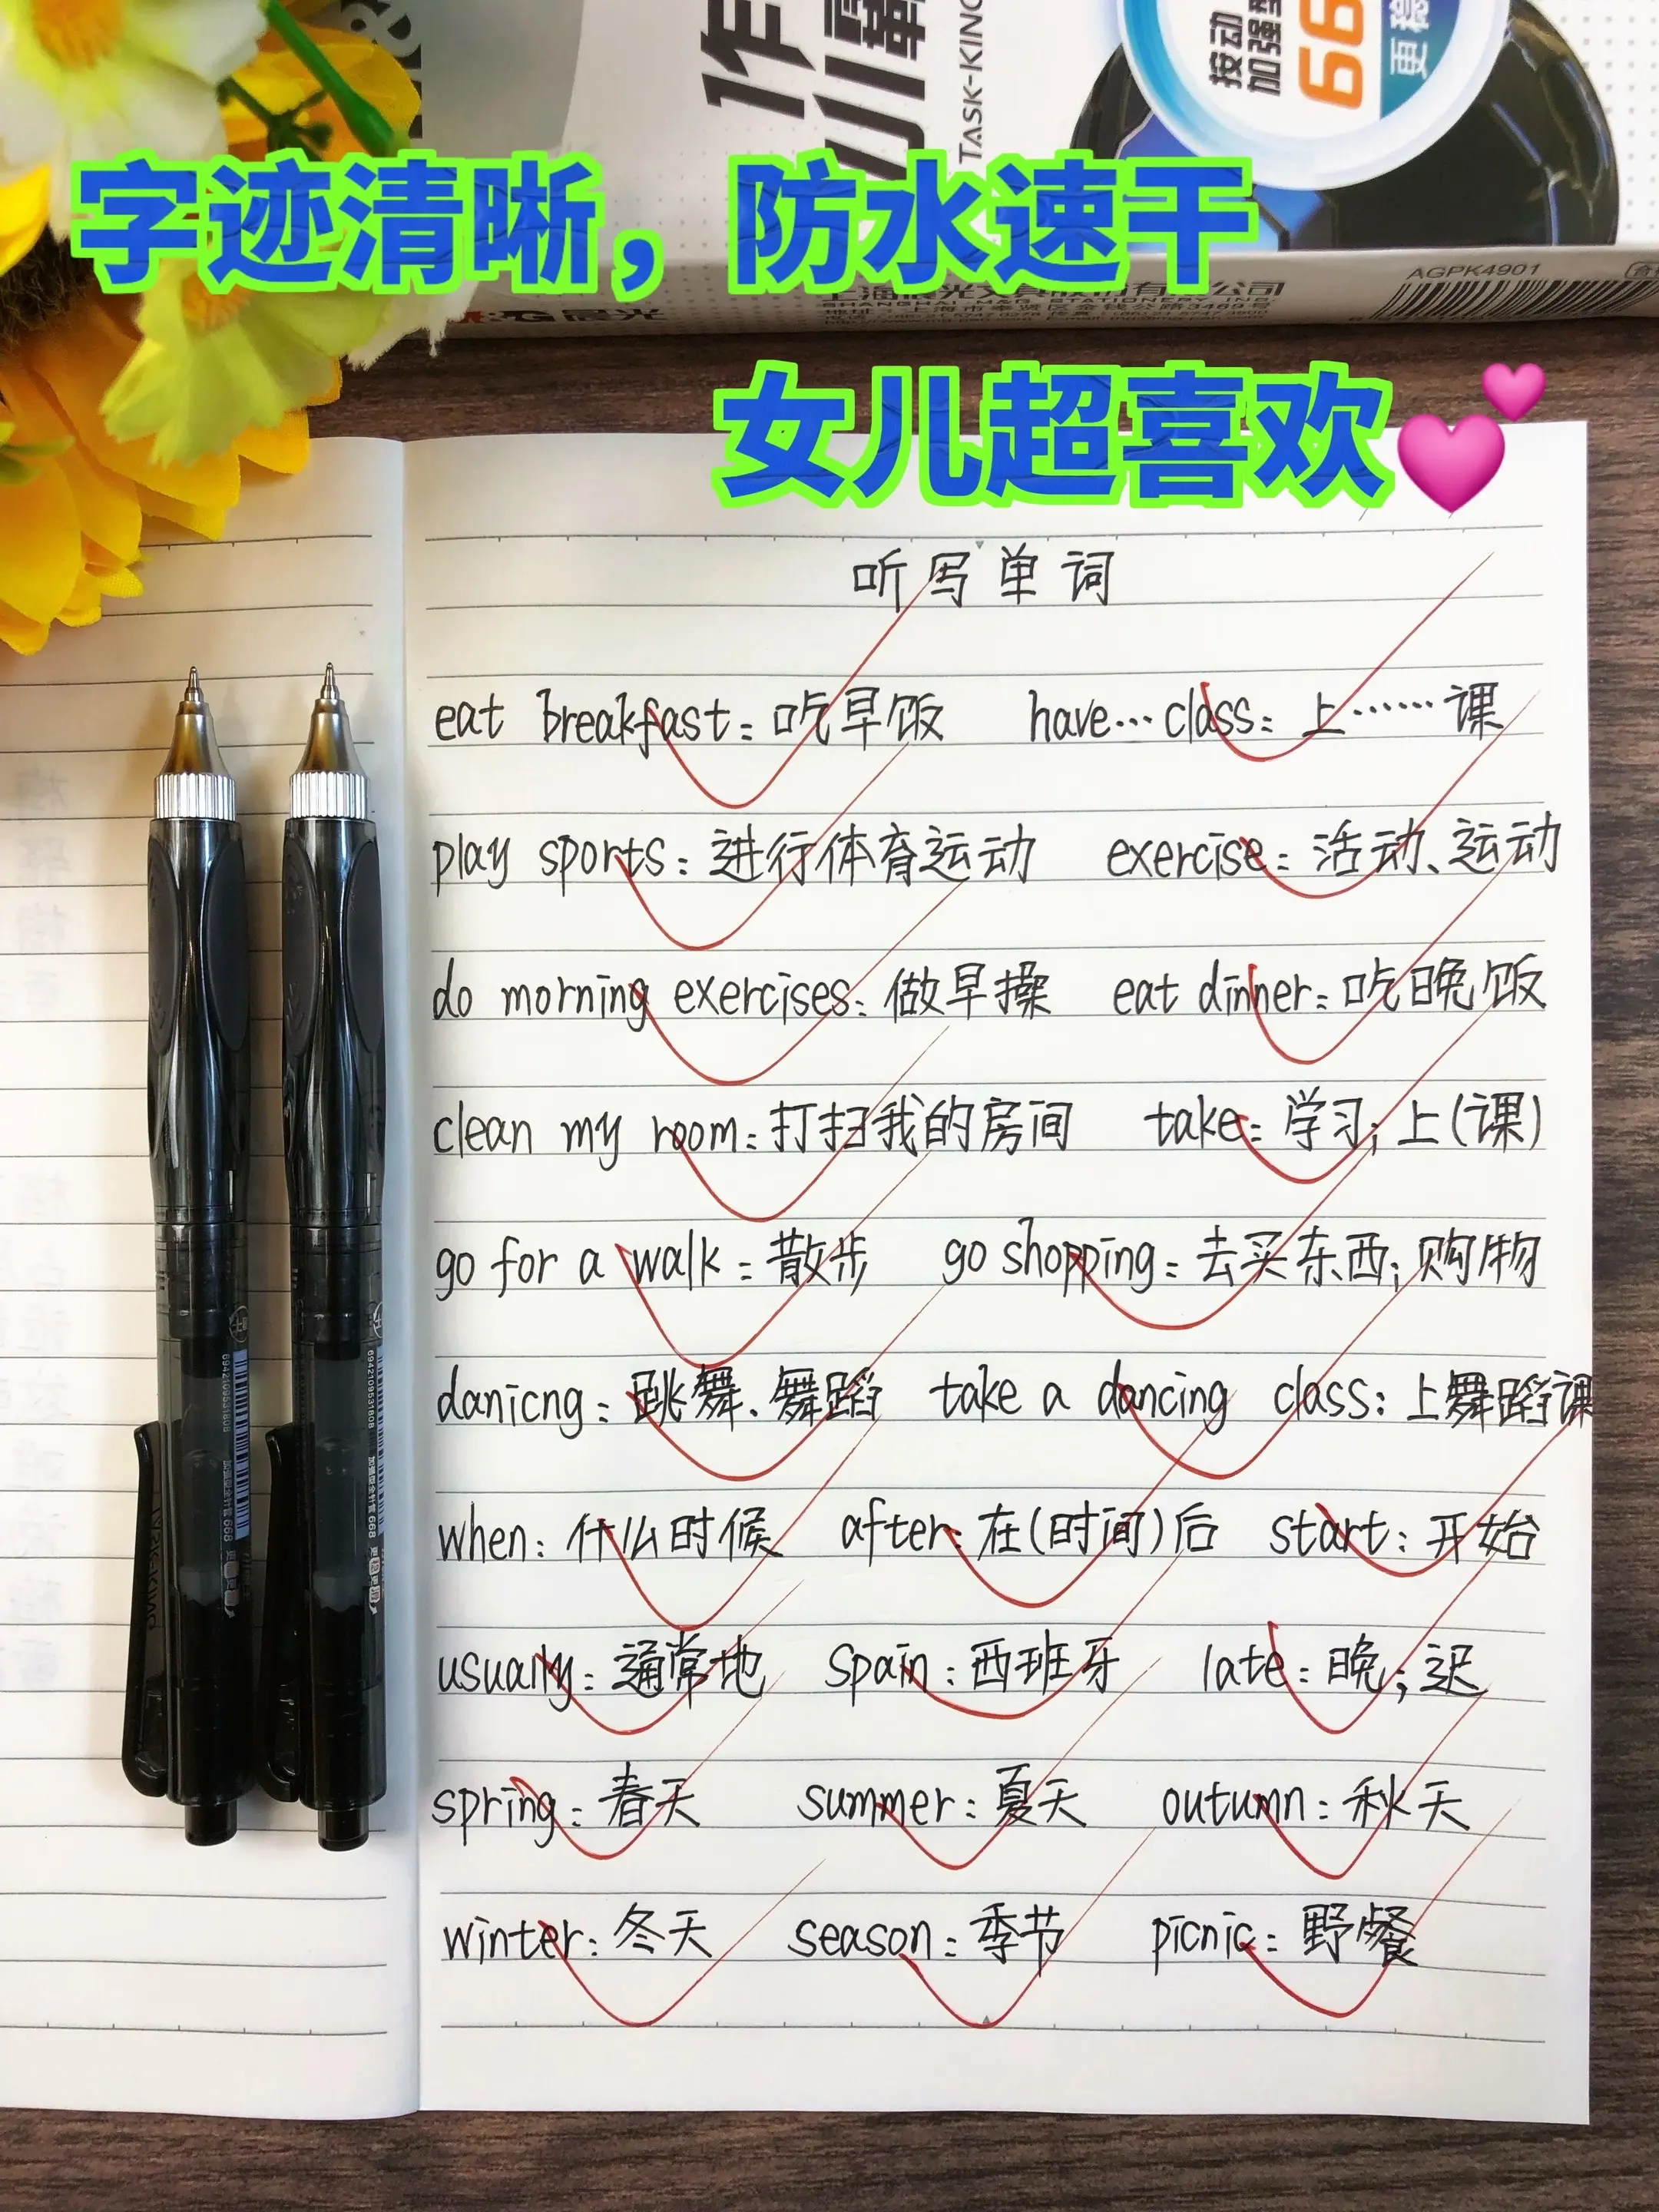 TASK-KING
按动
加强型
更稳
AGPK4901
字迹清晰，防水速干
女儿超喜欢
听写单词
eat breakfast: 吃早饭 have…class: 上……课
play sports: 进行体育运动 exercise: 活动、运动
do morning exercises: 做早操 eat dinner: 吃晚饭
clean my room: 打扫我的房间 take: 学习; 上(课)
go for a walk: 散步 go shopping: 去买东西; 购物
danicng: 跳舞、舞蹈 take a dancing class: 上舞蹈课
when: 什么时候 after: 在(时间)后 start: 开始
usually: 通常地 Spain: 西班牙 late: 晚; 迟
spring: 春天 summer: 夏天 outumn: 秋天
winter: 冬天 season: 季节 picnic: 野餐
6942109531808 加强型全针管 668
6942109531808 加强型全针管 668